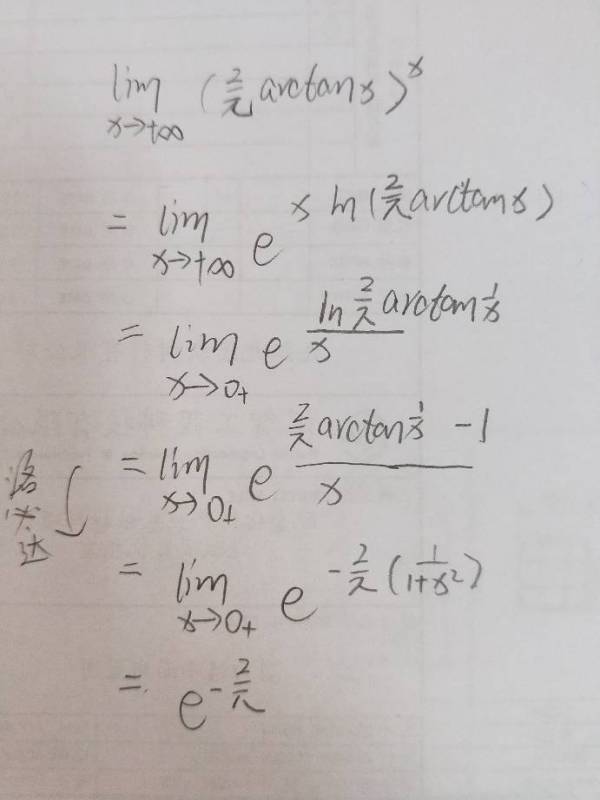 lim x→+∞ (2/π arctan x)^x
= lim x→+∞ e^(x ln(2/π arctan x))
= lim x→0+ e^((ln 2/π arctan 1/x)/x)
= lim x→0+ e^((2/π arctan 1/x - 1)/x)
洛必达
= lim x→0+ e^(-2/π (1/(1+x²)))
= e^(-2/π)